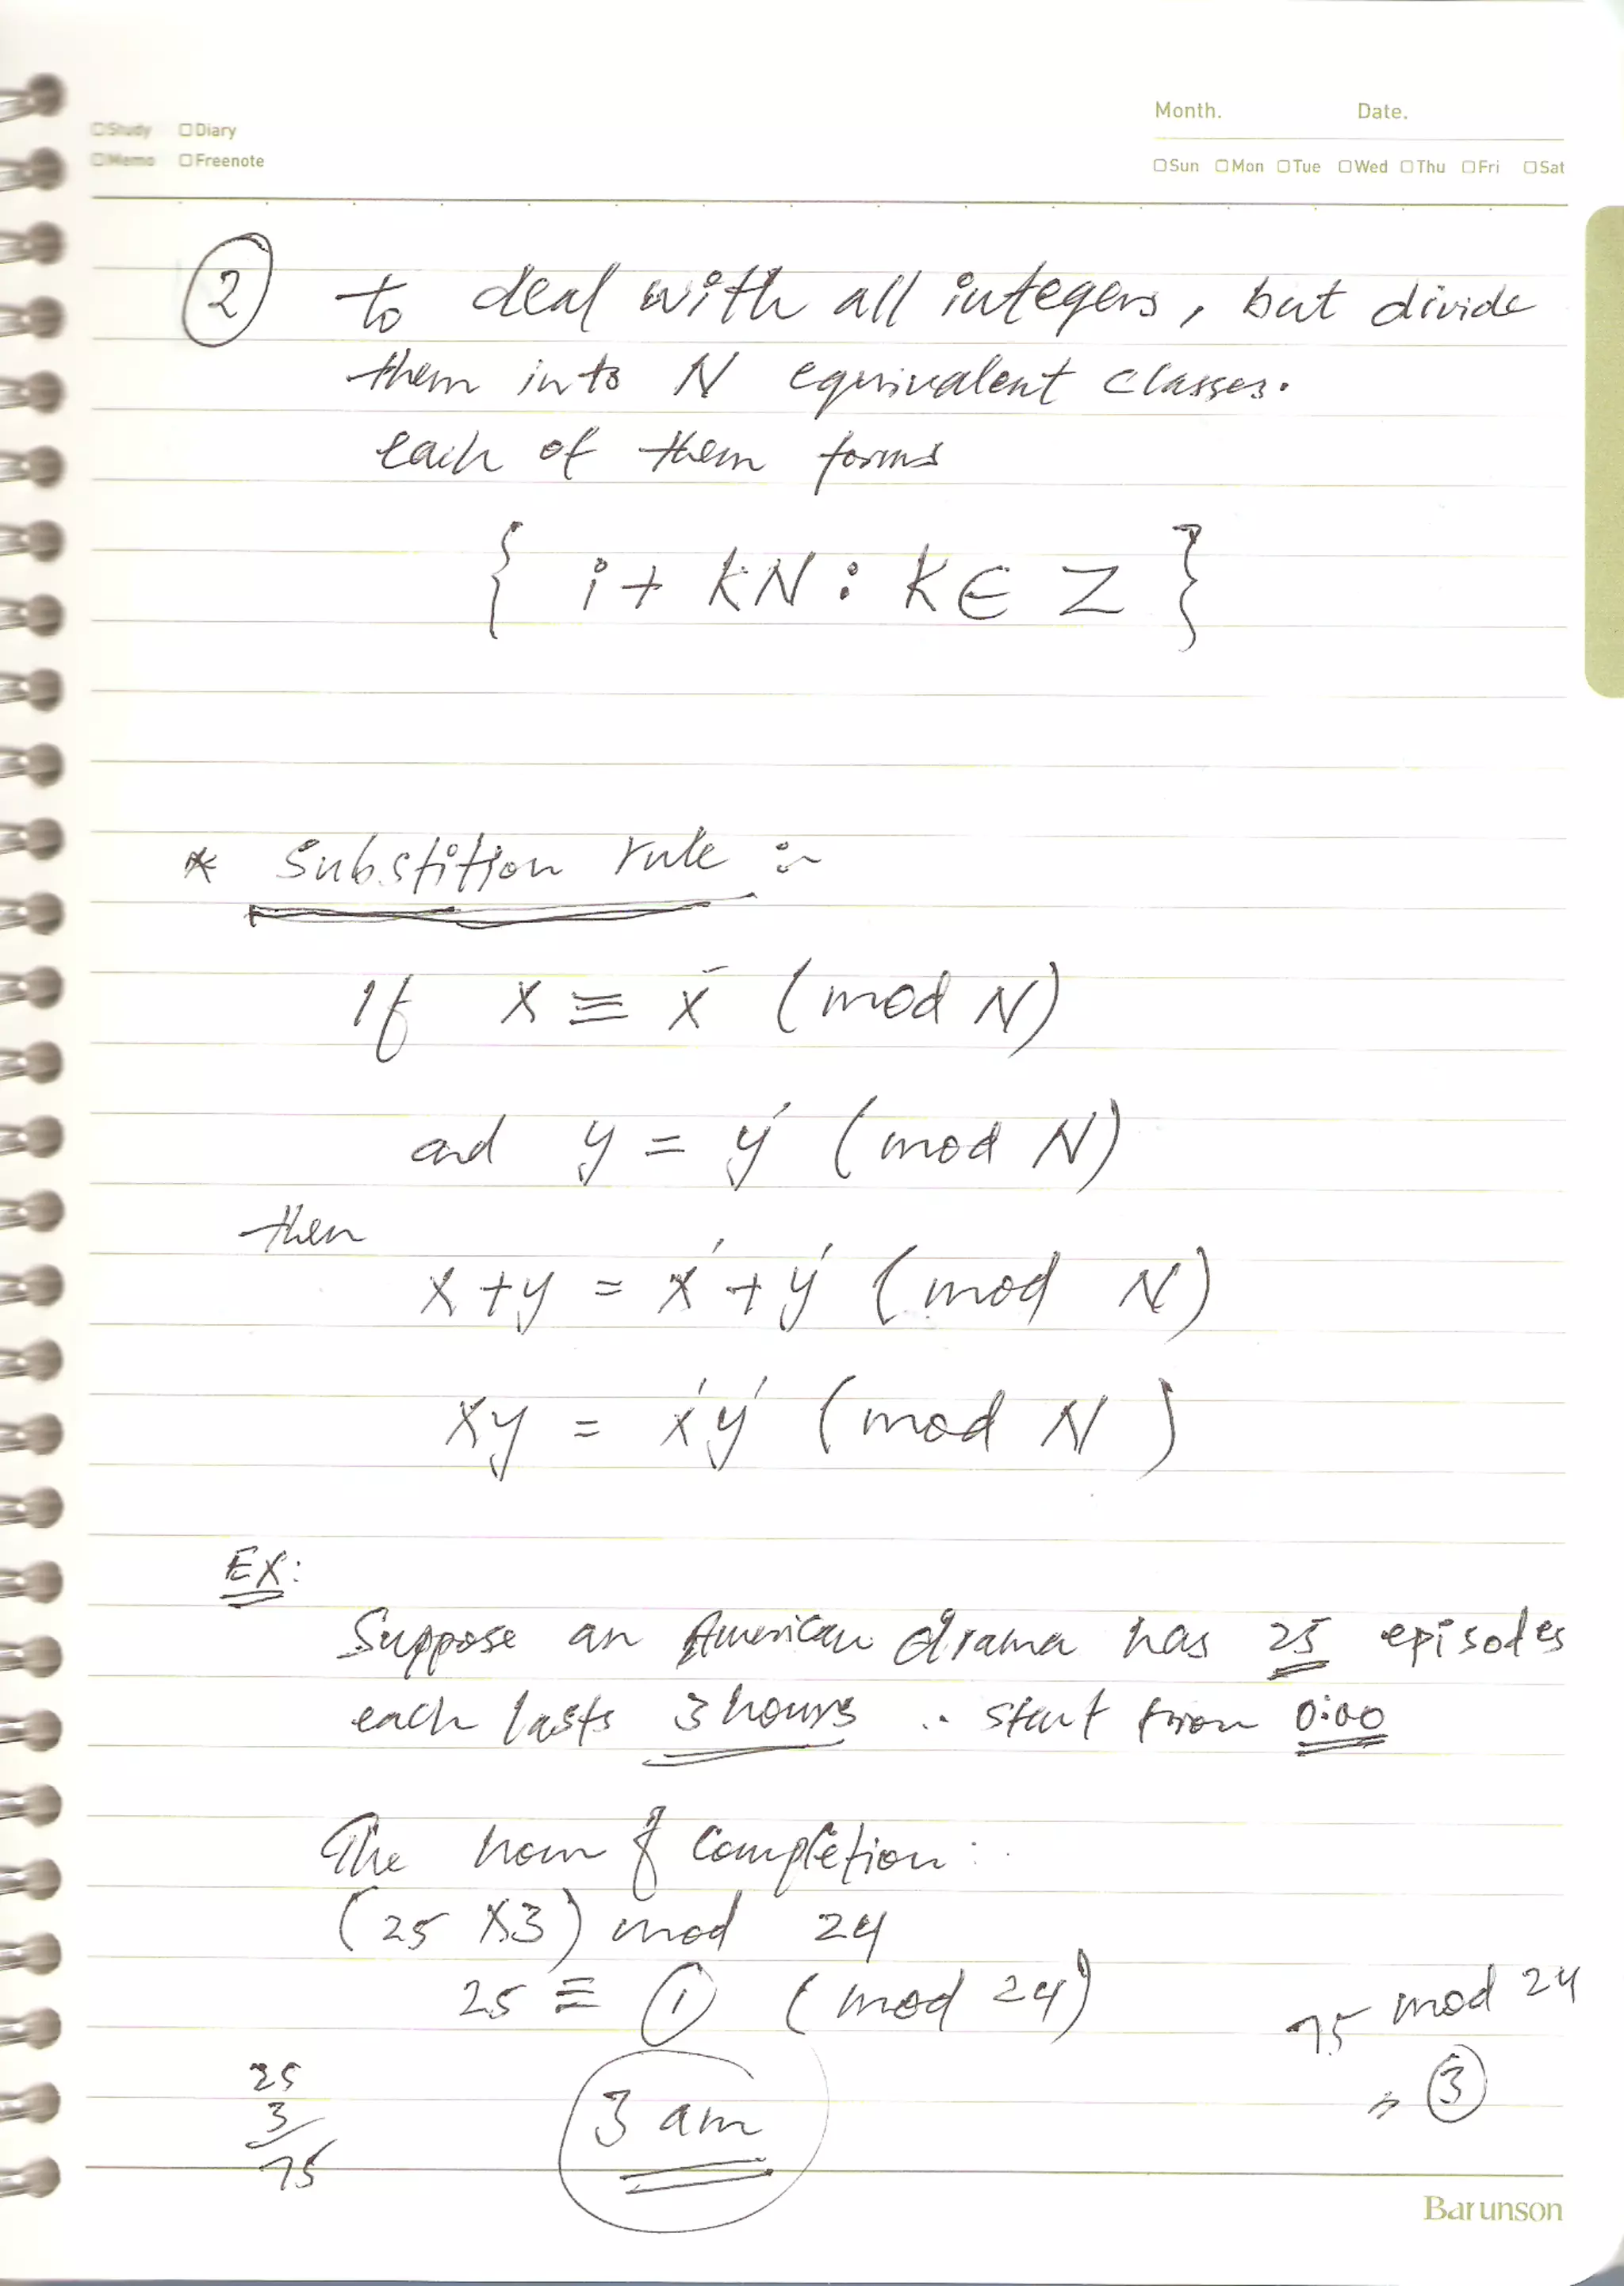 Month. Date.
☐Study ☐Diary
☐Memo ☐Freenote
☐Sun ☐Mon ☐Tue ☐Wed ☐Thu ☐Fri ☐Sat
② to deal with all integers, but divide
them into N equivalent classes.
each of them forms
{ i + kN : k ∈ Z }
* Substition rule :-
If x ≡ x' (mod N)
and y = y' (mod N)
then
x + y = x' + y' (mod N)
xy = x'y' (mod N)
EX:
Suppose an American drama has 25 episodes
each lasts 3 hours .. start from 0:00
The hour of Completion :
(25 x3) mod 24
25 ≡ ① (mod 24)
75 mod 24
= ③
25
3
75
3 am
Barunson